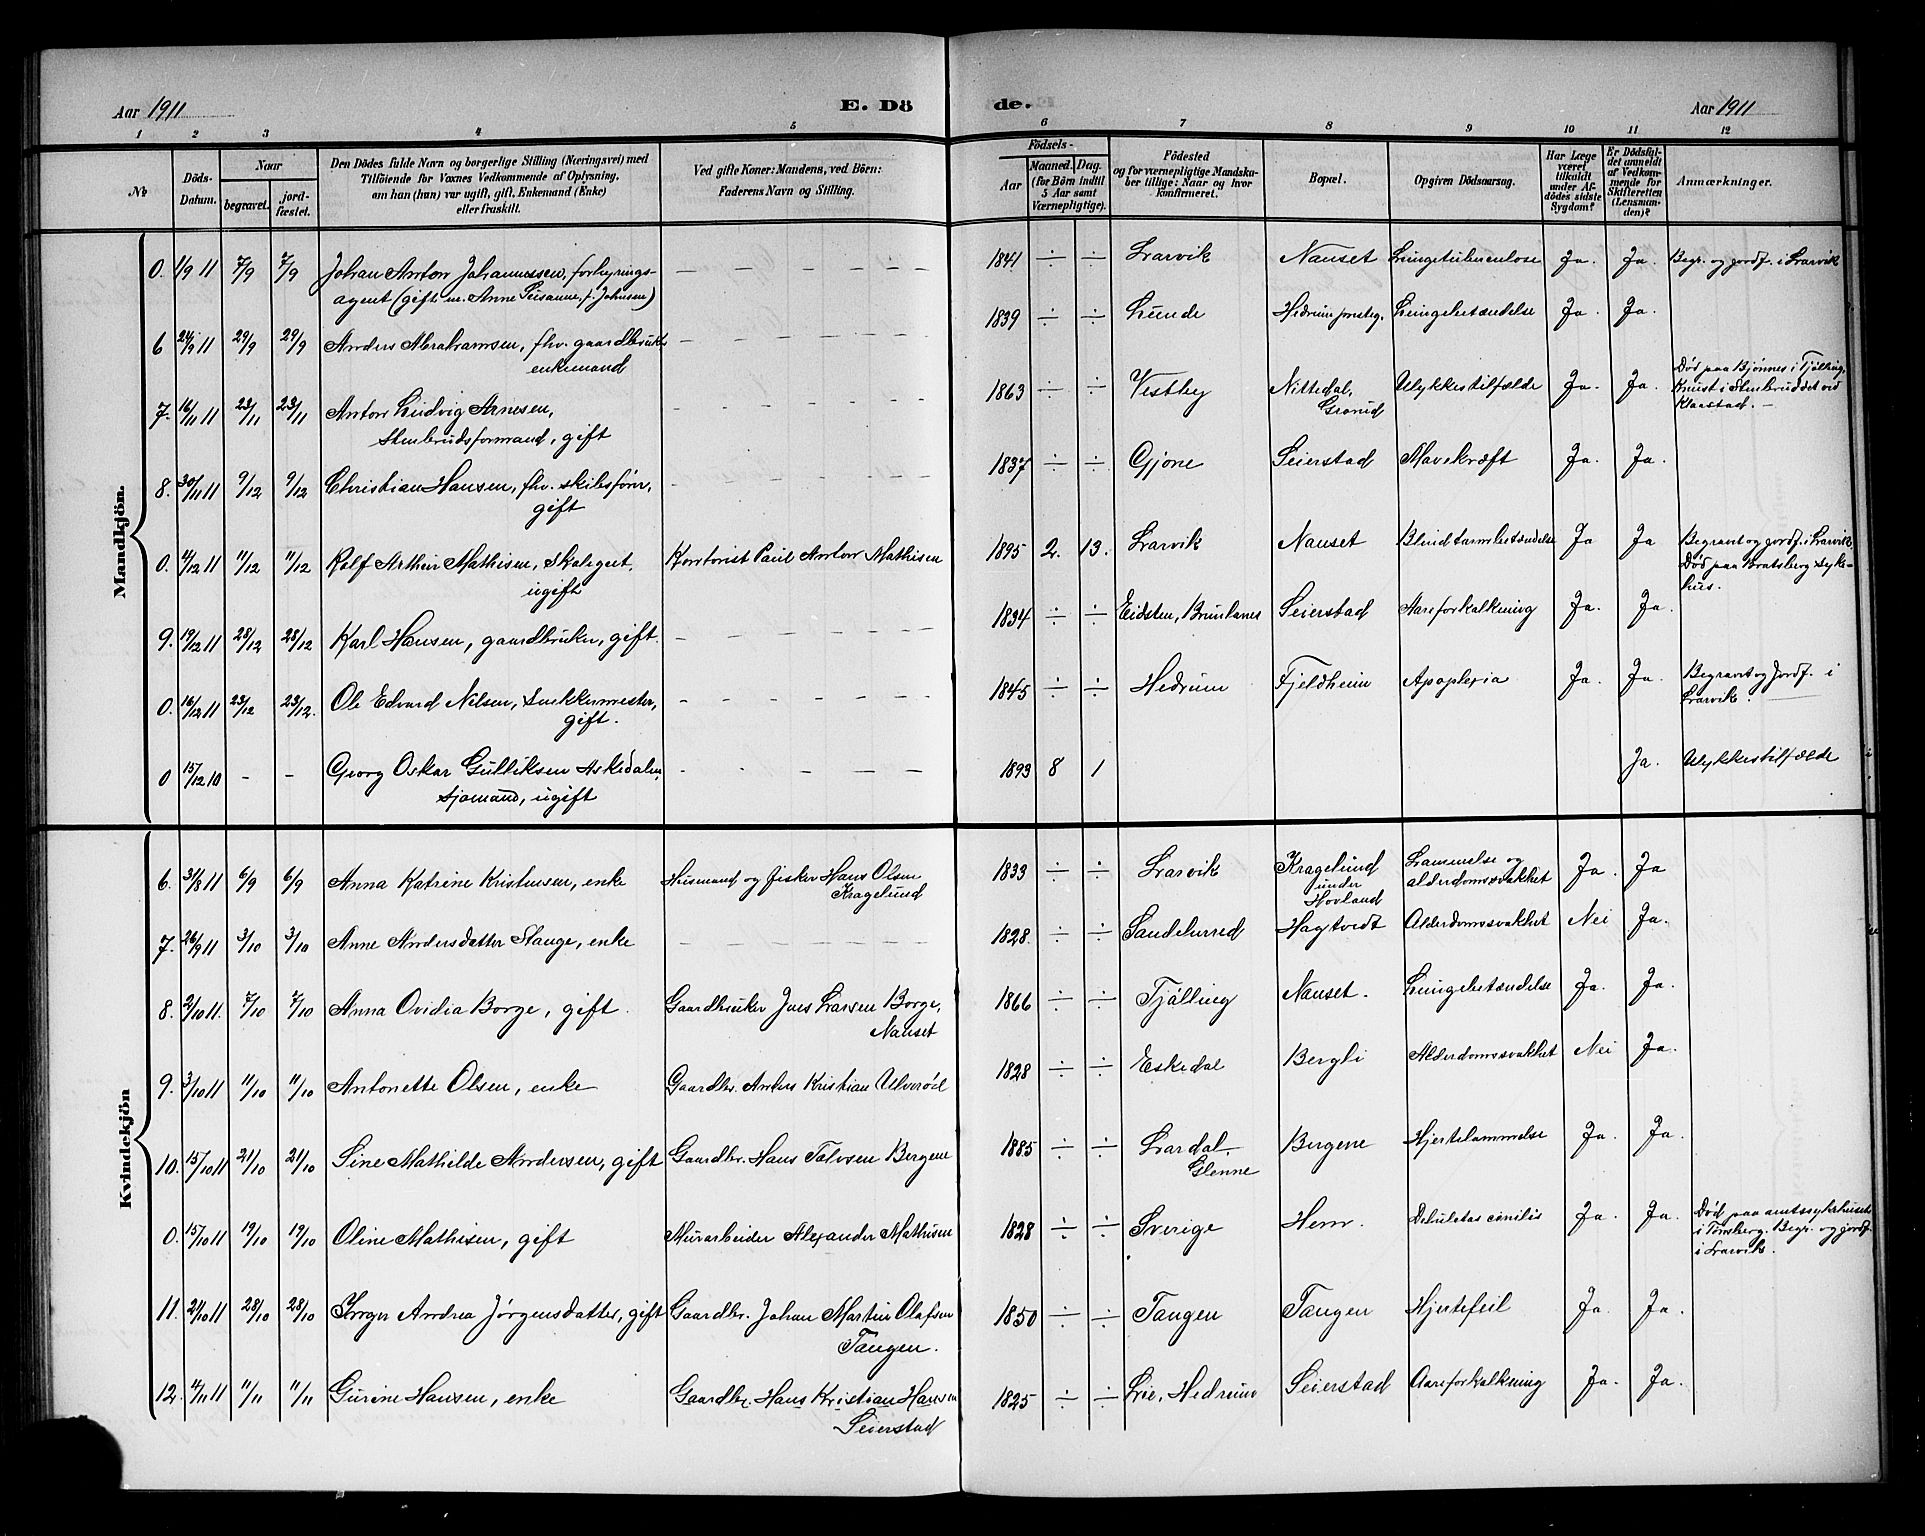 Aar 1911
E. Dö
de.
Aar 1911
1 2 3 4 5 6 7 8 9 10 11 12
№
Döds-
Datum.
Naar
begravet.
jord-
fæstet.
Den Dödes fulde Navn og borgerlige Stilling (Næringsvei) med
Tilföiende for Voxnes Vedkommende af Oplysning,
om han (hun) var ugift, gift, Enkemand (Enke)
eller fraskilt.
Ved gifte Koner: Mandens, ved Börn:
Faderens Navn og Stilling.
Födsels-
Aar
Maaned. Dag.
(for Börn indtil
5 Aar samt
Værnepligtige).
Födested
og for værnepligtige Mandskaber
tillige: Naar og hvor
konfirmeret.
Bopæl.
Opgiven Dödsaarsag.
Har Læge
været
tilkaldt
under Af-
dödes sidste
Sygdom?
Er Dödsfal-
det anmeldt
af Vedkom-
mende for
Skifteretten
(Lensman-
den)?
Anmærkninger.
Mandkjön.
0. 1/9 11 7/9 7/9 Johan Anton Johannessen, forhyrings- — — — — — 1841 ÷ ÷ Larvik Nanset Lungetuberculose Ja. Ja. Begr. og jordf. i Larvik
agent (gift m. Anne Susanne, f. Johnsen)
6 24/9 11 29/9 29/9 Anders Abrahamsen, fhv. gaardbruker — — — — — 1839 ÷ ÷ Lunde Hedrum presteg. Lungebetændelse Ja. Ja.
enkemand
7. 16/11 11 23/11 23/11 Anton Ludvig Arnesen, — — — — — 1863 ÷ ÷ Vestby Nittedal, Ulykkestilfælde Ja. Ja. Død paa Bjønnes i Tjølling,
Stenbrudsformand, gift Grorud Knust i Stenbruddet ved
Klaastad. —
8. 30/11 11 9/12 9/12 Christian Hansen, fhv. skibsfører, — — — — — 1837 ÷ ÷ Gjone Seierstad Mavekræft Ja. Ja.
gift
0. 4/12 11 11/12 11/12 Rolf Arthur Mathisen, Skolegut, Kontorist Paul Anton Mathisen 1895 2. 13. Larvik Nanset Blindtarmbetændelse Ja Ja Begravet og jordf. i Larvik.
ugift Død paa Bratsberg syke-
hus.
9. 19/12 11 28/12 28/12 Karl Hansen, gaardbruker, gift. — — — — — 1834 ÷ ÷ Eidsten, Brunlanes Seierstad Aareforkalkning Ja. Ja.
0. 16/12 11 23/12 23/12. Ole Edvard Nilsen, Snekkermester, — — — — — 1845 ÷ ÷ Hedrum Fjeldheim Apoplexia Ja. Ja. Begravet og Jordf. i
gift. Larvik.
0 15/12 10 - - Georg Oskar Gulliksen Askedalen, — — — — — 1893 8 1 Ja. Ulykkestilfælde
Sjømand, ugift
Kvindekjön
6. 31/8 11 6/9 6/9 Anna Katrine Kristensen, enke Husmand og fisker Hans Olsen 1833 ÷ ÷ Larvik Kragelund Lammelse og Ja. Ja
Kragelund under alderdomssvakhet
Hovland
7. 26/9 11 3/10 3/10 Anne Andersdatter Stange, enke — — — — — — 1828. ÷ ÷ Sandeherred Hagtvedt Alderdomssvakhet Nei Ja.
8. 2/10 11. 7/10 7/10 Anna Ovidia Borge, gift. Gaardbruker Jens Larsen Borge, 1866 ÷ ÷ Tjølling Nanset. Lungebetændelse Ja. Ja.
Nanset
9. 3/10 11 11/10 11/10 Antonette Olsen, enke Gaardbr. Anders Kristian Ulverød 1828 ÷ ÷ Eskedal Bergli Alderdomssvakhet Nei Ja.
10. 15/10 11 21/10 21/10 Sine Mathilde Andersen, gift Gaardbr. Hans Tolvsen Bergene 1885 ÷ ÷ Lardal- Bergene Hjertelammelse Ja. Ja.
Glenne
0. 15/10 11 19/10 19/10 Oline Mathisen, gift Murarbeider Alexander Mathisen 1828 ÷ ÷ Sverige Hem. Debilitas cenilis Ja. Ja. Død paa amtssykehuset
i Tønsberg. Begr. og jordf.
i Larvik.
11. 21/10 11 28/10 28/10 Inger Andrea Jørgensdatter, gift Gaardbr. Johan Martin Olafsen 1850 ÷ ÷ Tangen Tangen Hjertefeil Ja. Ja.
Tangen.
12. 4/11 11 11/11 11/11 Gurine Hansen, enke Gaardbr. Hans Kristian Hansen 1825 ÷ ÷ Lie, Hedrum Seierstad Aareforkalkning Ja. Ja.
Seierstad